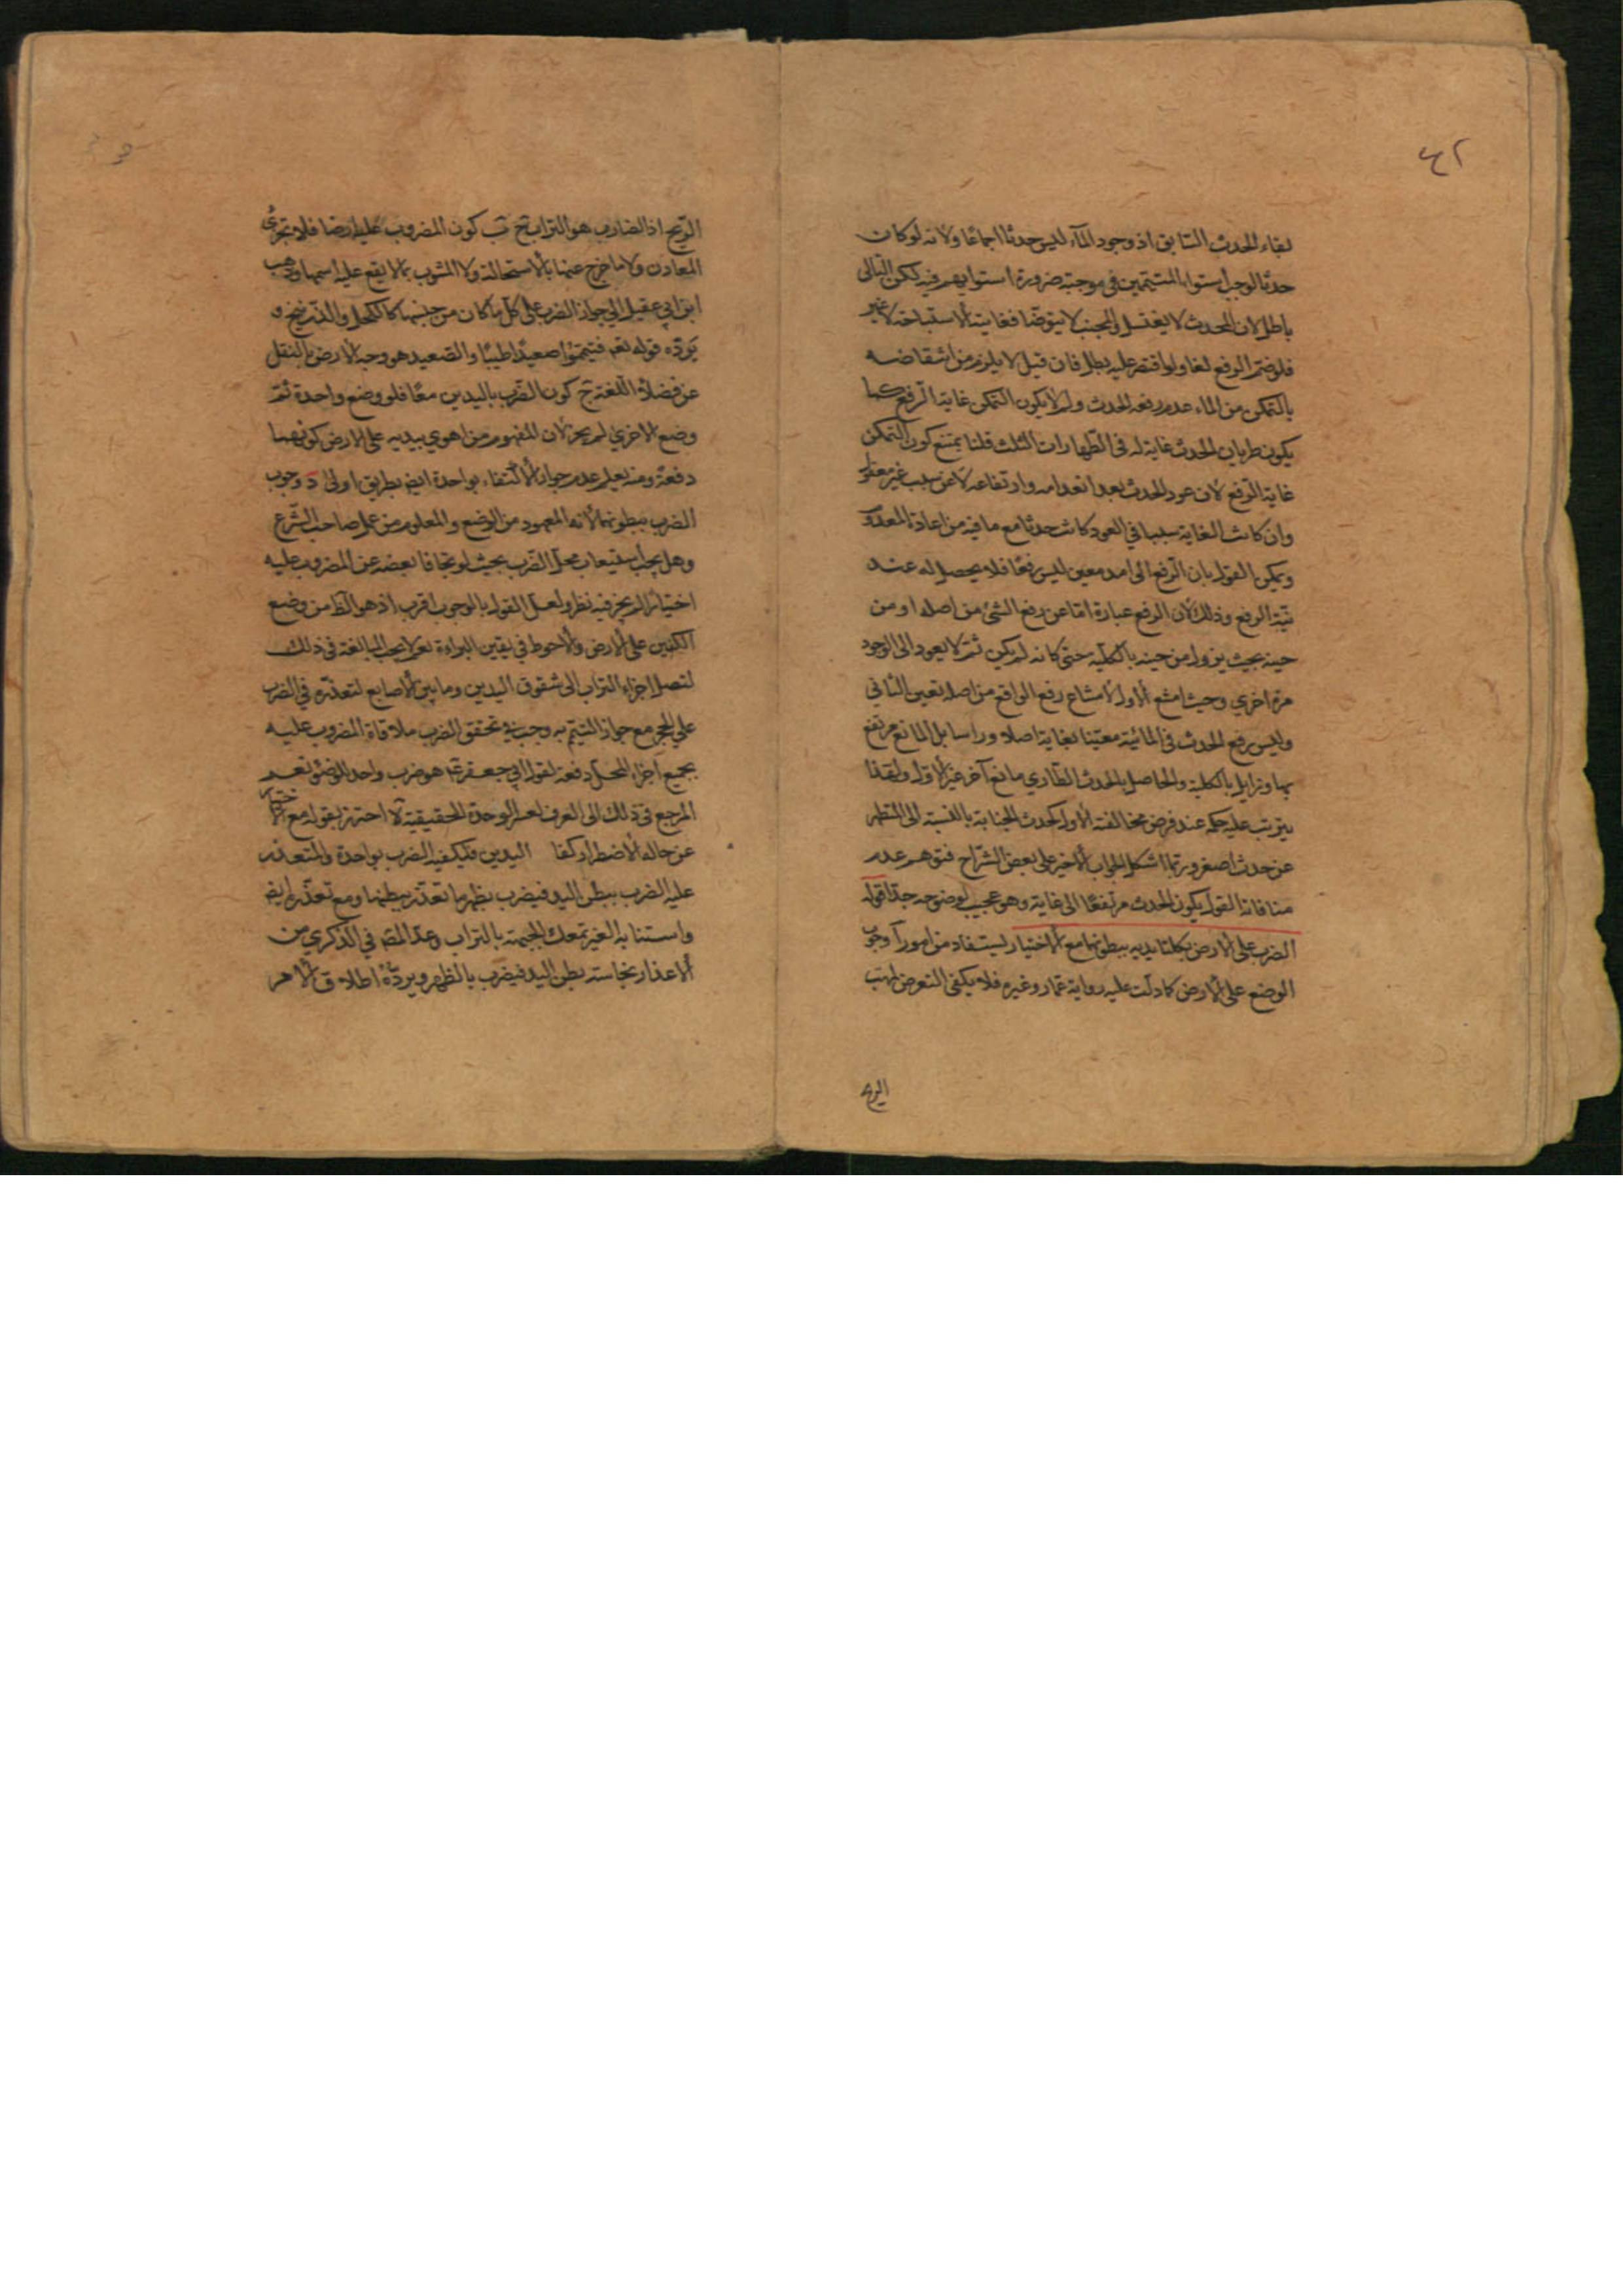 ٤٢
لبقاء الحدث السابق اذ وجود الماء ليس حدثا اجماعًا ولانه لو كان
حدثا لوجب استواء المتيممين في موجبه ضرورة استوايهم فيه لكن التالى
باطل لان المحدث لا يغتسل والجنب لا يتوضا فغايته الاستباحة لا غير
فلو ضم الرفع لغا ولو اقتصر عليه بطل فان قيل لا يلزم من انتقاضه
بالتمكن من الماء عدم رفعه الحدث ولم لا يكون التمكن غاية الرفع كما
يكون طريان الحدث غاية له في الطهارات الثلث قلنا يمتنع كون التمكن
غاية الرفع لان عود الحدث بعد انعدامه وارتفاعه لا عن سبب غير معقول
وان كانت الغاية سببا في العود كانت حدثا مع ما فيه من اعادة المعدوم
ويمكن القول بان الرفع الى امد معين ليس رفعًا فلا يحصل له عند
نية الرفع وذلك لان الرفع عبارة اما عن رفع الشئ من اصله او من
حينه بحيث يزول من حينه بالكلية حتى كانه لم يكن ثم لا يعود الى الوجود
مرة اخري وحيث امتنع الاول لامتناع رفع الواقع من اصله تعين الثاني
وليس رفع الحدث في المائية مغيّنا بغاية اصلا وراسا بل المانع مرتفع
بها وزايل بالكلية والحاصل بالحدث الطاري مانع آخر غير الاول ولهذا
يترتب عليه حكمه عند فرض مخالفته الاول كحدث الجنابة بالنسبة الى المتطهر
عن حدث اصغر وربما اشكل الجواب الاخير على بعض الشراح فتوهم عدم
منافاته القول بكون الحدث مرتفعًا الى غاية وهو عجيب لوضوحه جدًا قوله
الضرب على الارض بكلتا يديه ببطونهما مع الاختيار ليستفاد من امور آ وجوب
الوضع على الارض كما دلت عليه رواية عمار وغيره فلا يكفى التعرض لمهب
الريح
الريح اذ الضارب هو التراب ح ب كون المضروب عليه ارضا فلا تجزئ
المعادن ولا ما خرج عنها بالاستحالة ولا المشوب بما لا يقع عليه اسمها وذهب
ابن ابي عقيل الي جواز الضرب على كل ما كان من جنسها كالكحل والزرنيخ و
يردّه قوله تعه فتيمموا صعيدًا طيبًا والصعيد هو وجه الارض بالنقل
عن فضلاء اللغة ج كون الضرب باليدين معًا فلو وضع واحدة ثم
وضع الاخري لم يجز لان المفهوم من اهوي بيديه على الارض كونهما
دفعة ومنه يعلم عدم جواز الاكتفاء بواحدة ايضه بطريق اولى د وجوب
الضرب ببطونهما لانه المعهود من الوضع والمعلوم من عمل صاحب الشرع
وهل يجب استيعاب محل الضرب بحيث لو تجافا بعضه عن المضروب عليه
اختيارا لم يجز فيه نظر ولعل القول بالوجوب اقرب اذ هو الظ من وضع
الكفين على الارض والاحوط في يقين البراءة نعم لا يجب المبالغة في ذلك
لتصل اجزاء التراب الى شقوق اليدين وما بين الاصابع لتعذره في الضرب
علي الحجر مع جواز التيمم به وجب في تحقق الضرب ملاقاة المضروب عليه
بجميع اجزاء المحل دفعة لقول ابي جعفر عه هو ضرب واحد للوضوء نعم
المرجع في ذلك الى العرف لعسر الوحدة الحقيقية لا احترز بقوله مع الاختيار
عن حالة الاضطرار كفا اليدين فيكفيه الضرب بواحدة والمتعذر
عليه الضرب ببطن اليد فيضرب بظهر ما تعذر ببطنها ومع تعذره ايضه
واستنابه الغير تمعك الجبهة بالتراب وعدّ المصّه في الذكري من
الاعذار نجاسته بطن اليد فيضرب بالظهر ويردّه اطلاق الامر